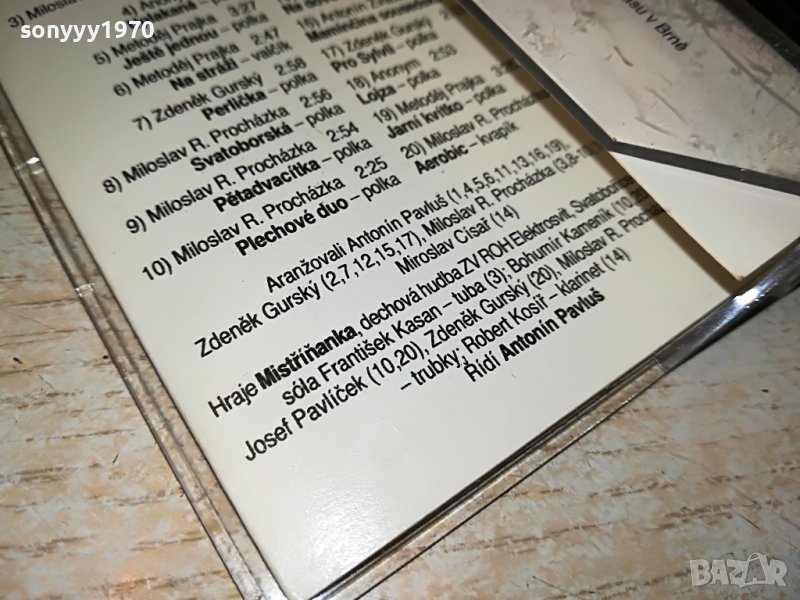 sonyyy1970
3) Miloslav
4) Anonym
5) Metoděj Prajka 2:47
Ještě jednou – polka
6) Metoděj Prajka
Na stráži – valčík
7) Zdeněk Gurský 2:58
Perlička – polka
8) Miloslav R. Procházka 2:56
Svatoborská – polka
9) Miloslav R. Procházka 2:54
Pětadvacítka – polka
10) Miloslav R. Procházka 2:25
Plechové duo – polka
16) Antonín
17) Zdeněk Gursky
Pro Sylvii – polka
18) Anonym 2:53
Lojza – polka
19) Metoděj Prajka
Jarní kvítko – polka
20) Miloslav R. Procházka
Aerobic – kvapík
v Brně
Aranžovali Antonín Pavluš (1,4,5,6,11,13,16,19),
Zdeněk Gurský (2,7,12,15,17), Miloslav R. Procházka
Miroslav Císař (14)
Hraje Mistříňanka, dechová hudba ZV ROH Elektrosvit, Svatobořice
sóla František Kasan – tuba (3); Bohumír Kameník
Josef Pavlíček (10,20), Zdeněk Gurský (20), Miloslav R.
– trubky; Robert Kosíř – klarinet (14)
Řídí Antonín Pavluš
BAZAR